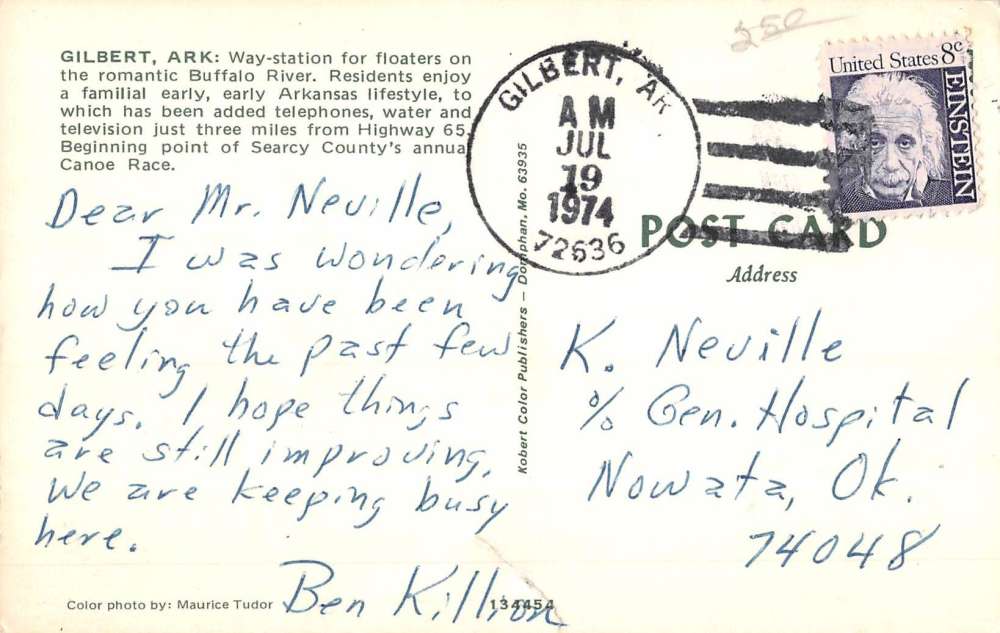 25¢
GILBERT, ARK: Way-station for floaters on
the romantic Buffalo River. Residents enjoy
a familial early, early Arkansas lifestyle, to
which has been added telephones, water and
television just three miles from Highway 65.
Beginning point of Searcy County's annual
Canoe Race.
Dear Mr. Neville,
I was wondering
how you have been
feeling the past few
days. I hope things
are still improving.
We are keeping busy
here.
Ben Killion
Color photo by: Maurice Tudor
134454
Kobert Color Publishers – Doniphan, Mo. 63935
GILBERT, AR
AM
JUL
19
1974
72636
United States 8c
EINSTEIN
POST CARD
Address
K. Neville
% Gen. Hospital
Nowata, Ok.
74048